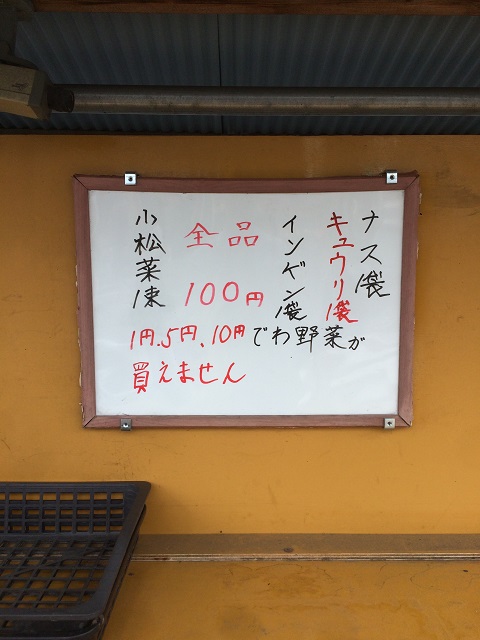 ナス1袋
キュウリ1袋
インゲン1袋
全品
100円
小松菜1束
1円、5円、10円でわ野菜が
買えません